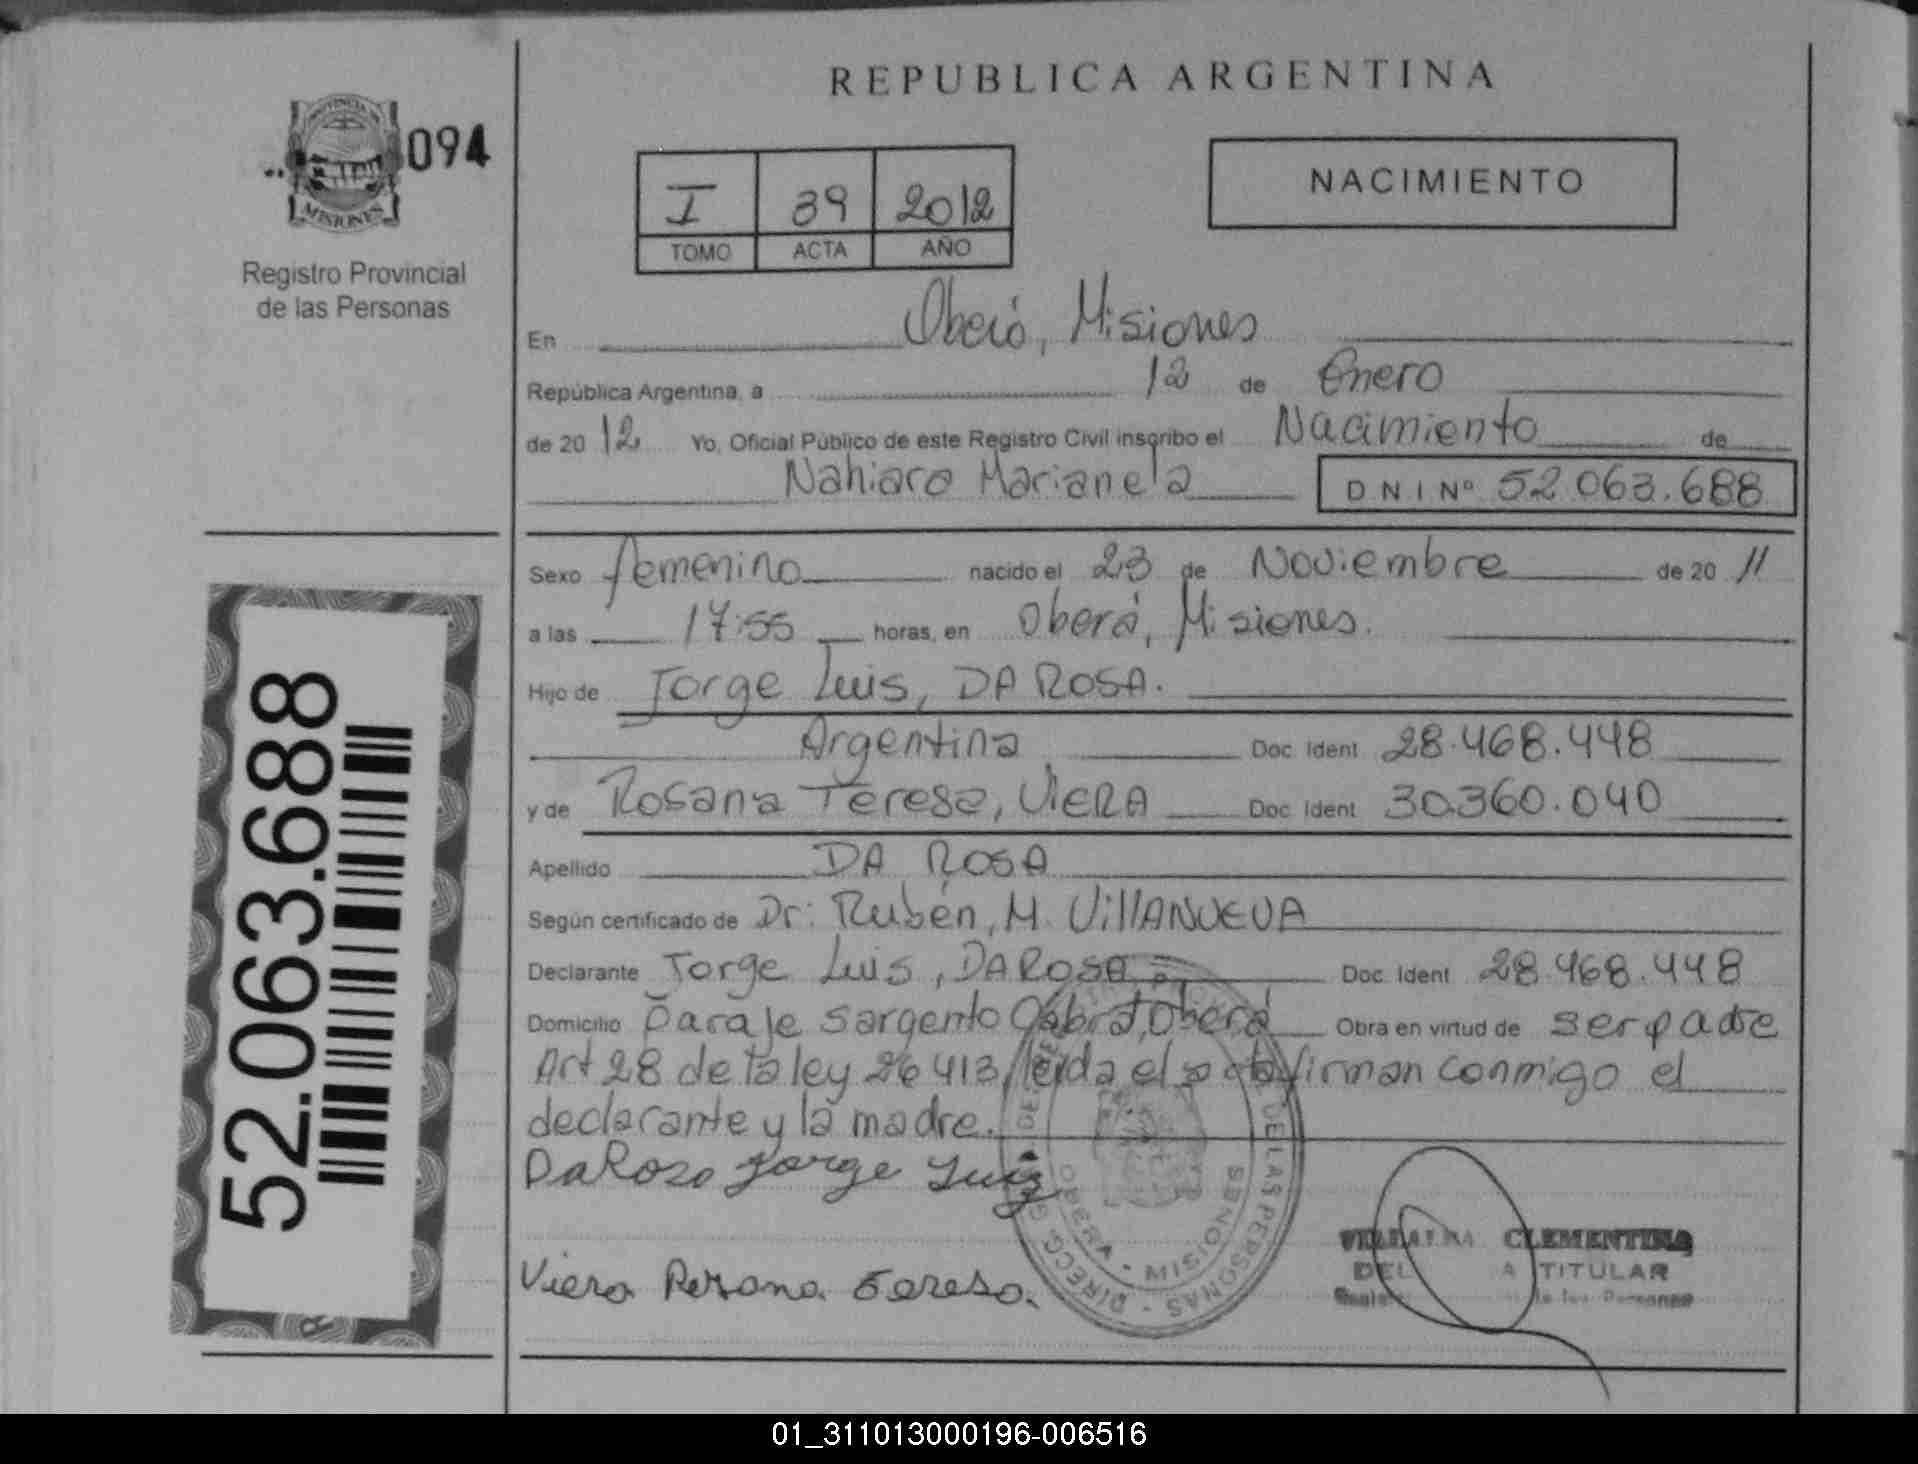 REPUBLICA ARGENTINA
PROVINCIA DE
MISIONES
094
Registro Provincial
de las Personas
I 39 2012
TOMO ACTA AÑO
NACIMIENTO
En Oberá, Misiones
República Argentina, a 12 de Enero
de 2012 Yo, Oficial Público de este Registro Civil inscribo el Nacimiento de
Nahiara Marianela DNI Nº 52.063.688
Sexo femenino nacido el 23 de Noviembre de 2011
a las 17:55 horas, en Oberá, Misiones.
Hijo de Jorge Luis, DA ROSA.
Argentina Doc. Ident 28.468.448
y de Rosana Teresa, VIERA Doc. Ident 30.360.040
Apellido DA ROSA
Según certificado de Dr: Rubén, M. VIllANUEVA
Declarante Jorge Luis, DA ROSA. Doc. Ident 28.468.448
Domicilio Paraje Sargento Cabral, Oberá Obra en virtud de ser padre
Art 28 de la ley 26413, leida el acta firman conmigo el
declarante y la madre.
DaRosa Jorge Luiz
Viera Rosana Teresa.
DELAS PERSONAS - DIRECC. G
OBERA - MISIONES
CLEMENTINA
DEL A TITULAR
de las Personas
52.063.688
01_311013000196-006516